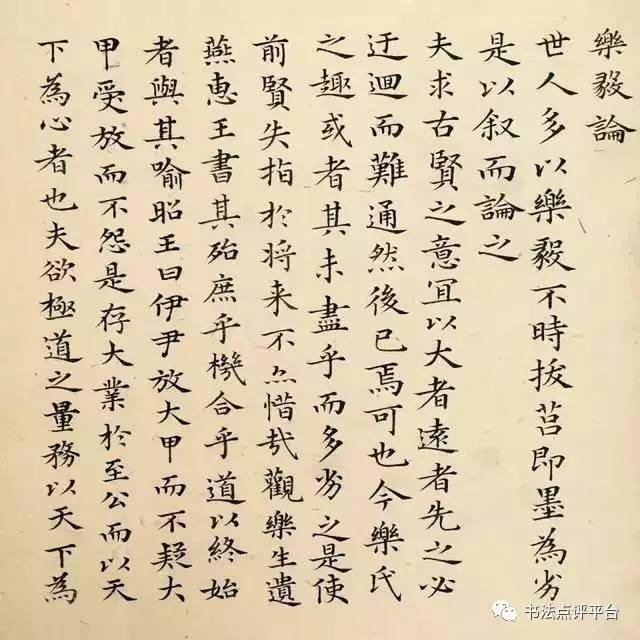 樂毅論
世人多以樂毅不時拔莒即墨為劣
是以叙而論之
夫求古賢之意宜以大者遠者先之必
迂迴而難通然後已焉可也今樂氏
之趣或者其未盡乎而多劣之是使
前賢失指於將来不亦惜哉觀樂生遺
燕惠王書其殆庶乎機合乎道以終始
者與其喻昭王曰伊尹放大甲而不疑大
甲受放而不怨是存大業於至公而以天
下為心者也夫欲極道之量務以天下為
书法点评平台